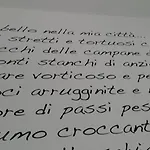 bello nella mia città...
stretti e tortuosi c
cchi delle campane d
onti stanchi di anzi
are vorticoso e pe
ci arrugginite e l
ore di passi pes
umo croccant